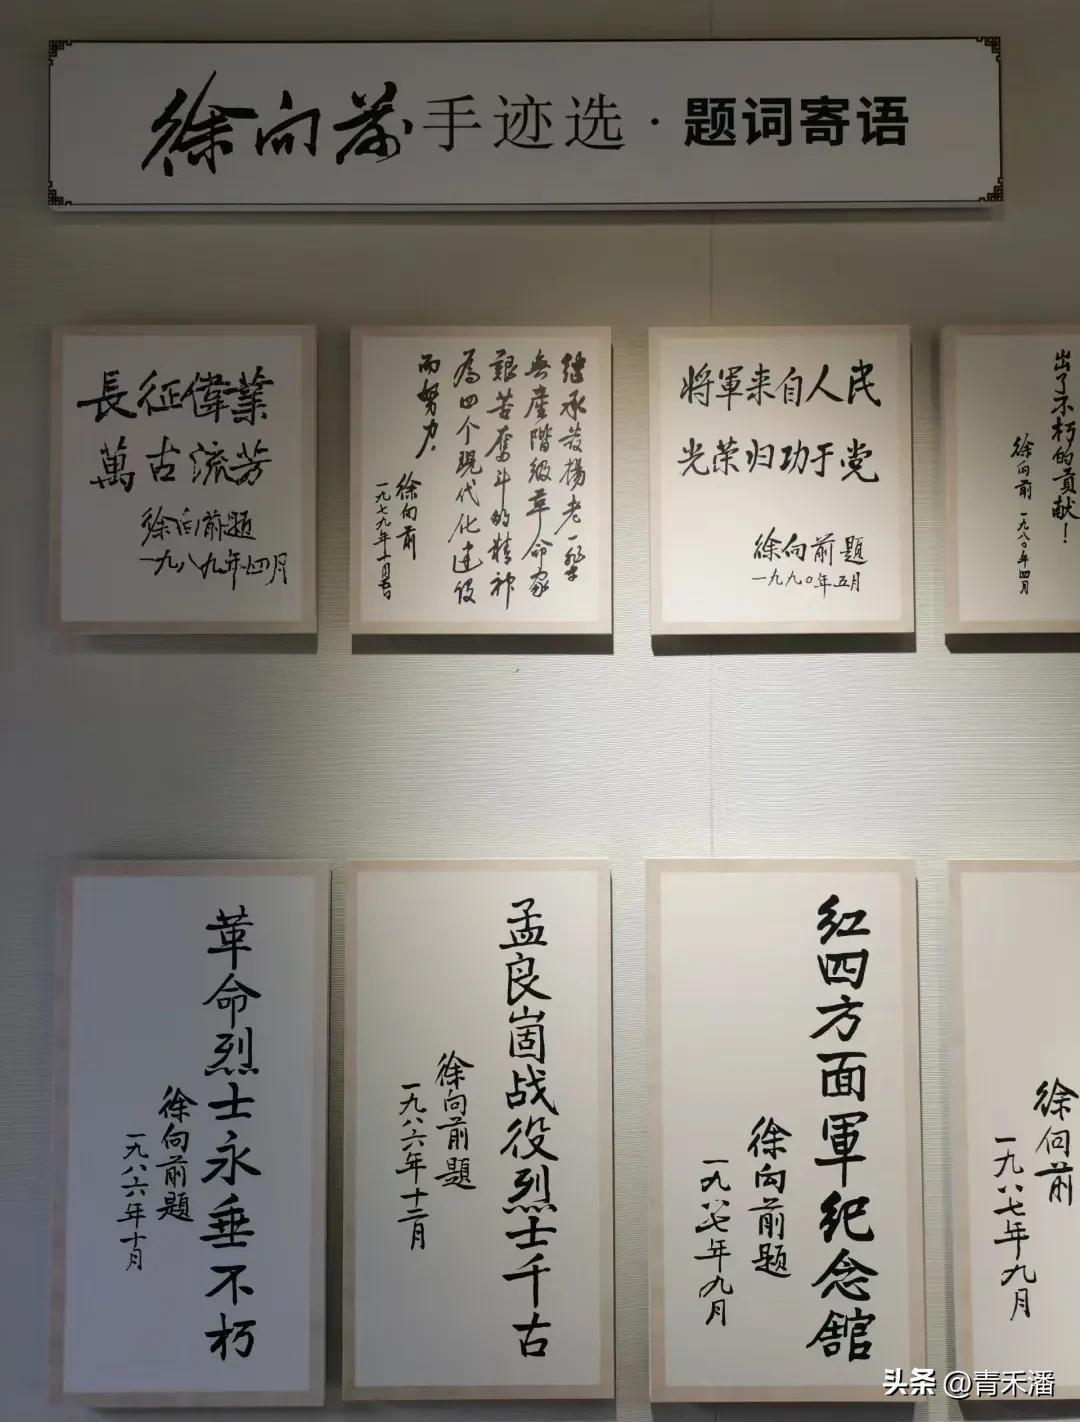 徐向前手迹选·题词寄语
長征偉業
萬古流芳
徐向前题
一九八九年四月
继承发揚老一輩
無產階級革命家
艱苦奮斗的精神
為四个現代化建设
而努力.
徐向前
一九七九年
将軍来自人民
光荣归功于党
徐向前题
一九九〇年五月
出了不朽的貢献！
徐向前 一九八〇年四月
革命烈士永垂不朽
徐向前題
一九八六年十月
孟良崮战役烈士千古
徐向前題
一九八六年十二月
红四方面軍纪念舘
徐向前题
一九八七年九月
徐向前
一九八七年九月
头条 @青禾潘